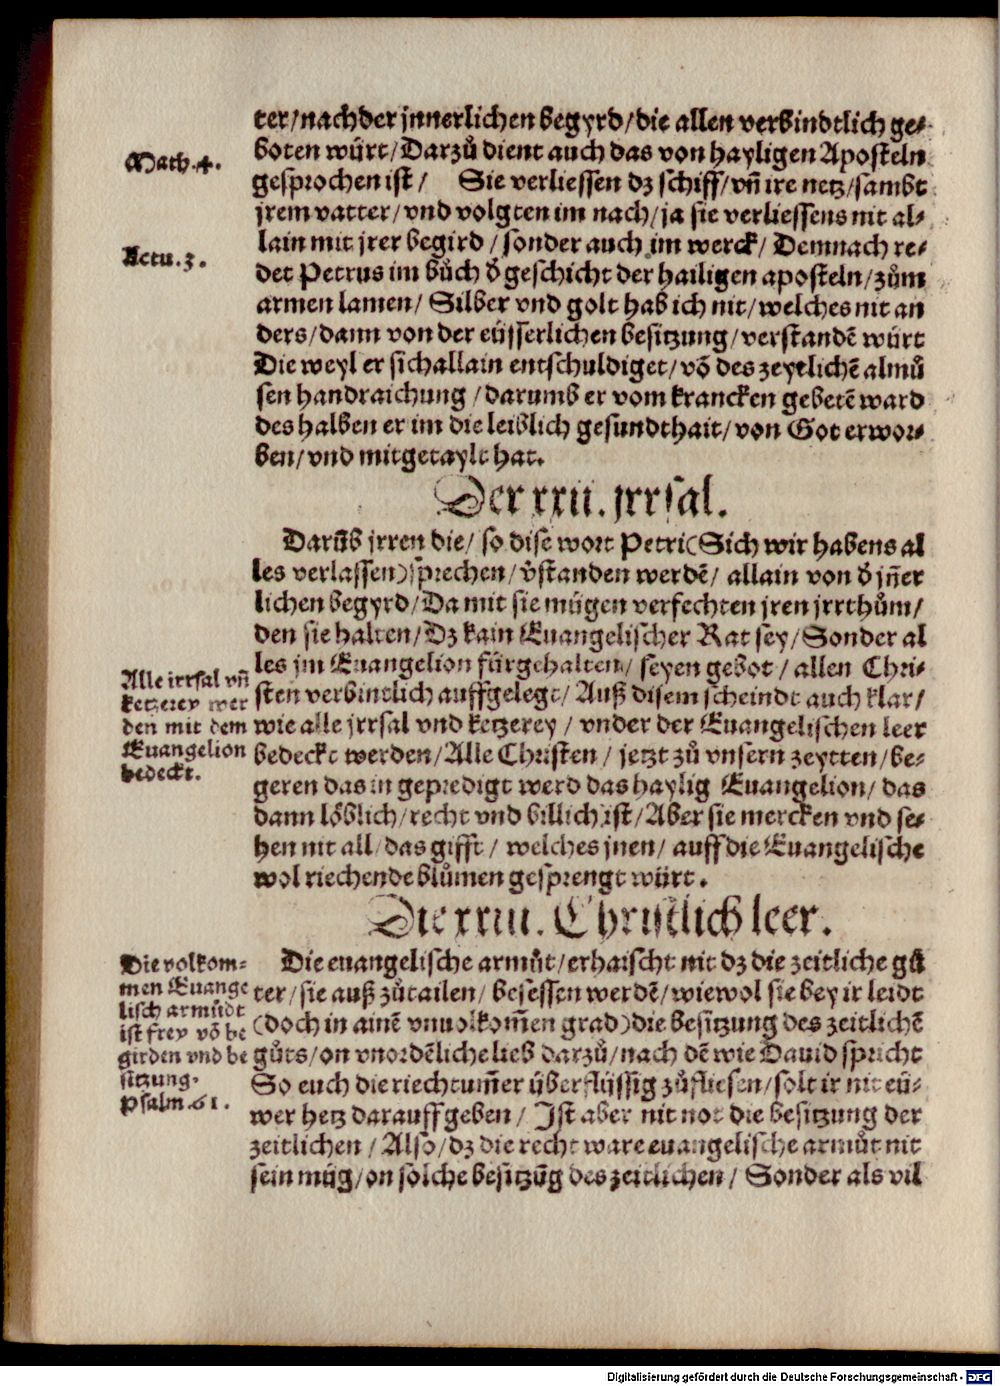 ter/nachder jnnerlichen begyrd/die allen verbindtlich ge-
boten würt/Darzů dient auch das von hayligen Aposteln
Math.4.
gesprochen ist/ Sie verliessen dz schiff/vñ ire netz/sambt
jrem vatter/vnd volgten im nach/ja sie verliessens nit al-
lain mit jrer begird/sonder auch im werck/Demnach re-
Actu.3.
det Petrus im bůch d̕ geschicht der hailigen aposteln/zům
armen lamen/Silber vnd golt hab ich nit/welches nit an
ders/dann von der eüsserlichen besitzung/verstandẽ würt
Die weyl er sichallain entschuldiget/võ des zeytlichẽ almů
sen handraichung/darumb er vom krancken gebetẽ ward
des halben er im die leiblich gesundthait/von Got erwor-
ben/vnd mitgetaylt hat.
Der xxii. jrrsal.
Darũb jrren die/so dise wort Petri(Sich wir habens al
les verlassen)sprechen/v̕standen werdẽ/allain von d̕ jñer
lichen begyrd/Da mit sie mügen verfechten jren jrrthům/
den sie halten/Dz kain Euangelischer Rat sey/Sonder al
les jm Euangelion fürgehalten/seyen gebot/allen Chri-
sten verbintlich auffgelegt/Auß disem scheindt auch klar/
wie alle jrrsal vnd ketzerey/vnder der Euangelischen leer
bedeckt werden/Alle Christen/jetzt zů vnsern zeytten/be-
geren das in gepredigt werd das haylig Euangelion/das
dann löblich/recht vnd billich ist/Aber sie mercken vnd se-
hen nit all/das gifft/welches jnen/auff die Euangelische
wol riechende blůmen gesprengt würt.
Alle irrsal vñ
ketzerey wer
den mit dem
Euangelion
bedeckt.
Die xxiii. Christlich leer.
Die euangelische armůt/erhaischt nit dz die zeitliche gů
ter/sie auß zůtailen/besessen werdẽ/wiewol sie bey ir leidt
(doch in ainẽ vnuolkom̃en grad)die besitzung des zeitlichẽ
gůts/on vnordẽliche lieb darzů/nach dẽ wie Dauid spricht
So euch die riechtum̃er überflüssig zůfliesen/solt ir nit eü-
wer hetz darauff geben/Ist aber nit not die besitzung der
zeitlichen/Also/dz die recht ware euangelische armůt nit
sein müg/on solche besitzũg des zeitlichen/Sonder als vil
Die volkom-
men Euange
lisch armůdt
ist frey võ be
girden vnd be
sitzung.
Psalm.61.
Digitalisierung gefördert durch die Deutsche Forschungsgemeinschaft - DFG